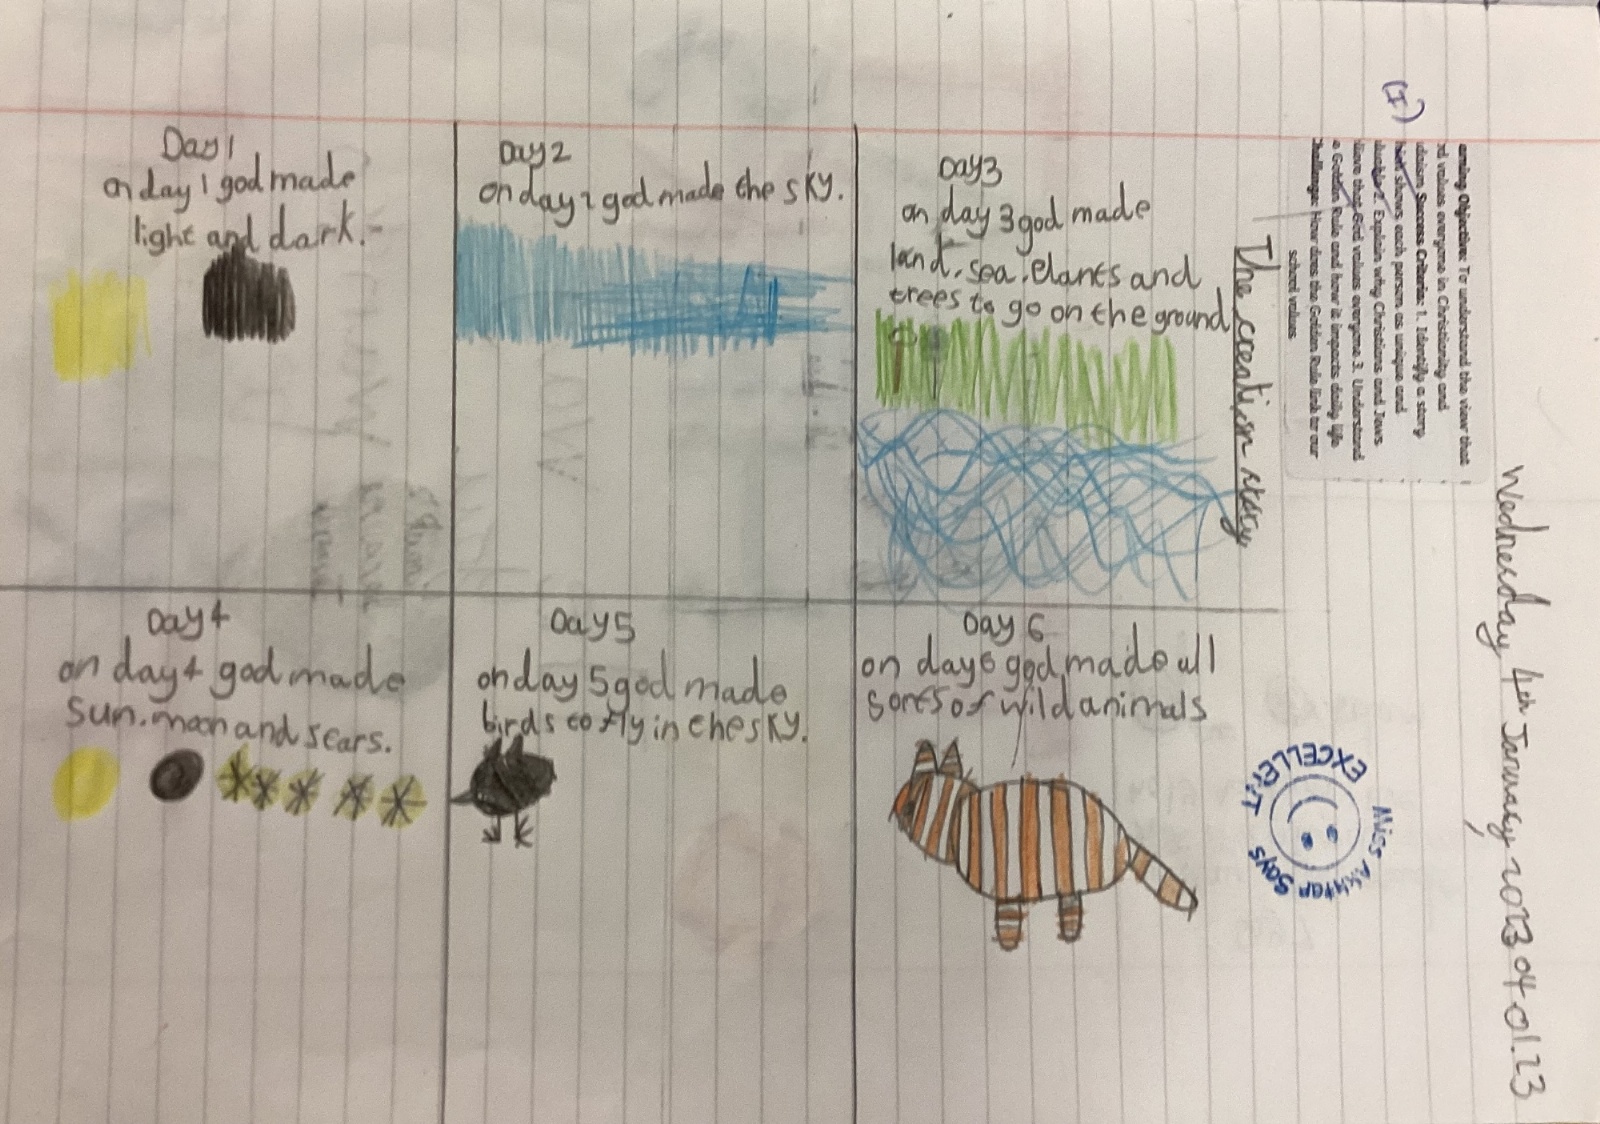 Wednesday 4th January 2023 04.01.23
(I)
arning Objective: To understand the view that
d values everyone in Christianity and
daism Success Criteria: 1. Identify a story
hich shows each person as unique and
luable 2. Explain why Christians and Jews
lieve that God values everyone 3. Understand
e Golden Rule and how it impacts daily life.
hallenge: How does the Golden Rule link to our
school values
The creation story
Day 1
on day 1 god made
light and dark.
Day 2
on day 2 god made the sky.
Day 3
on day 3 god made
land, sea. plants and
trees to go on the ground
Day 4
on day 4 god made
sun. moon and stars.
Day 5
on day 5 god made
birds to fly in the sky.
Day 6
on day 6 god made all
sorts of wild animals
Miss Akhtar Says
EXCELLENT